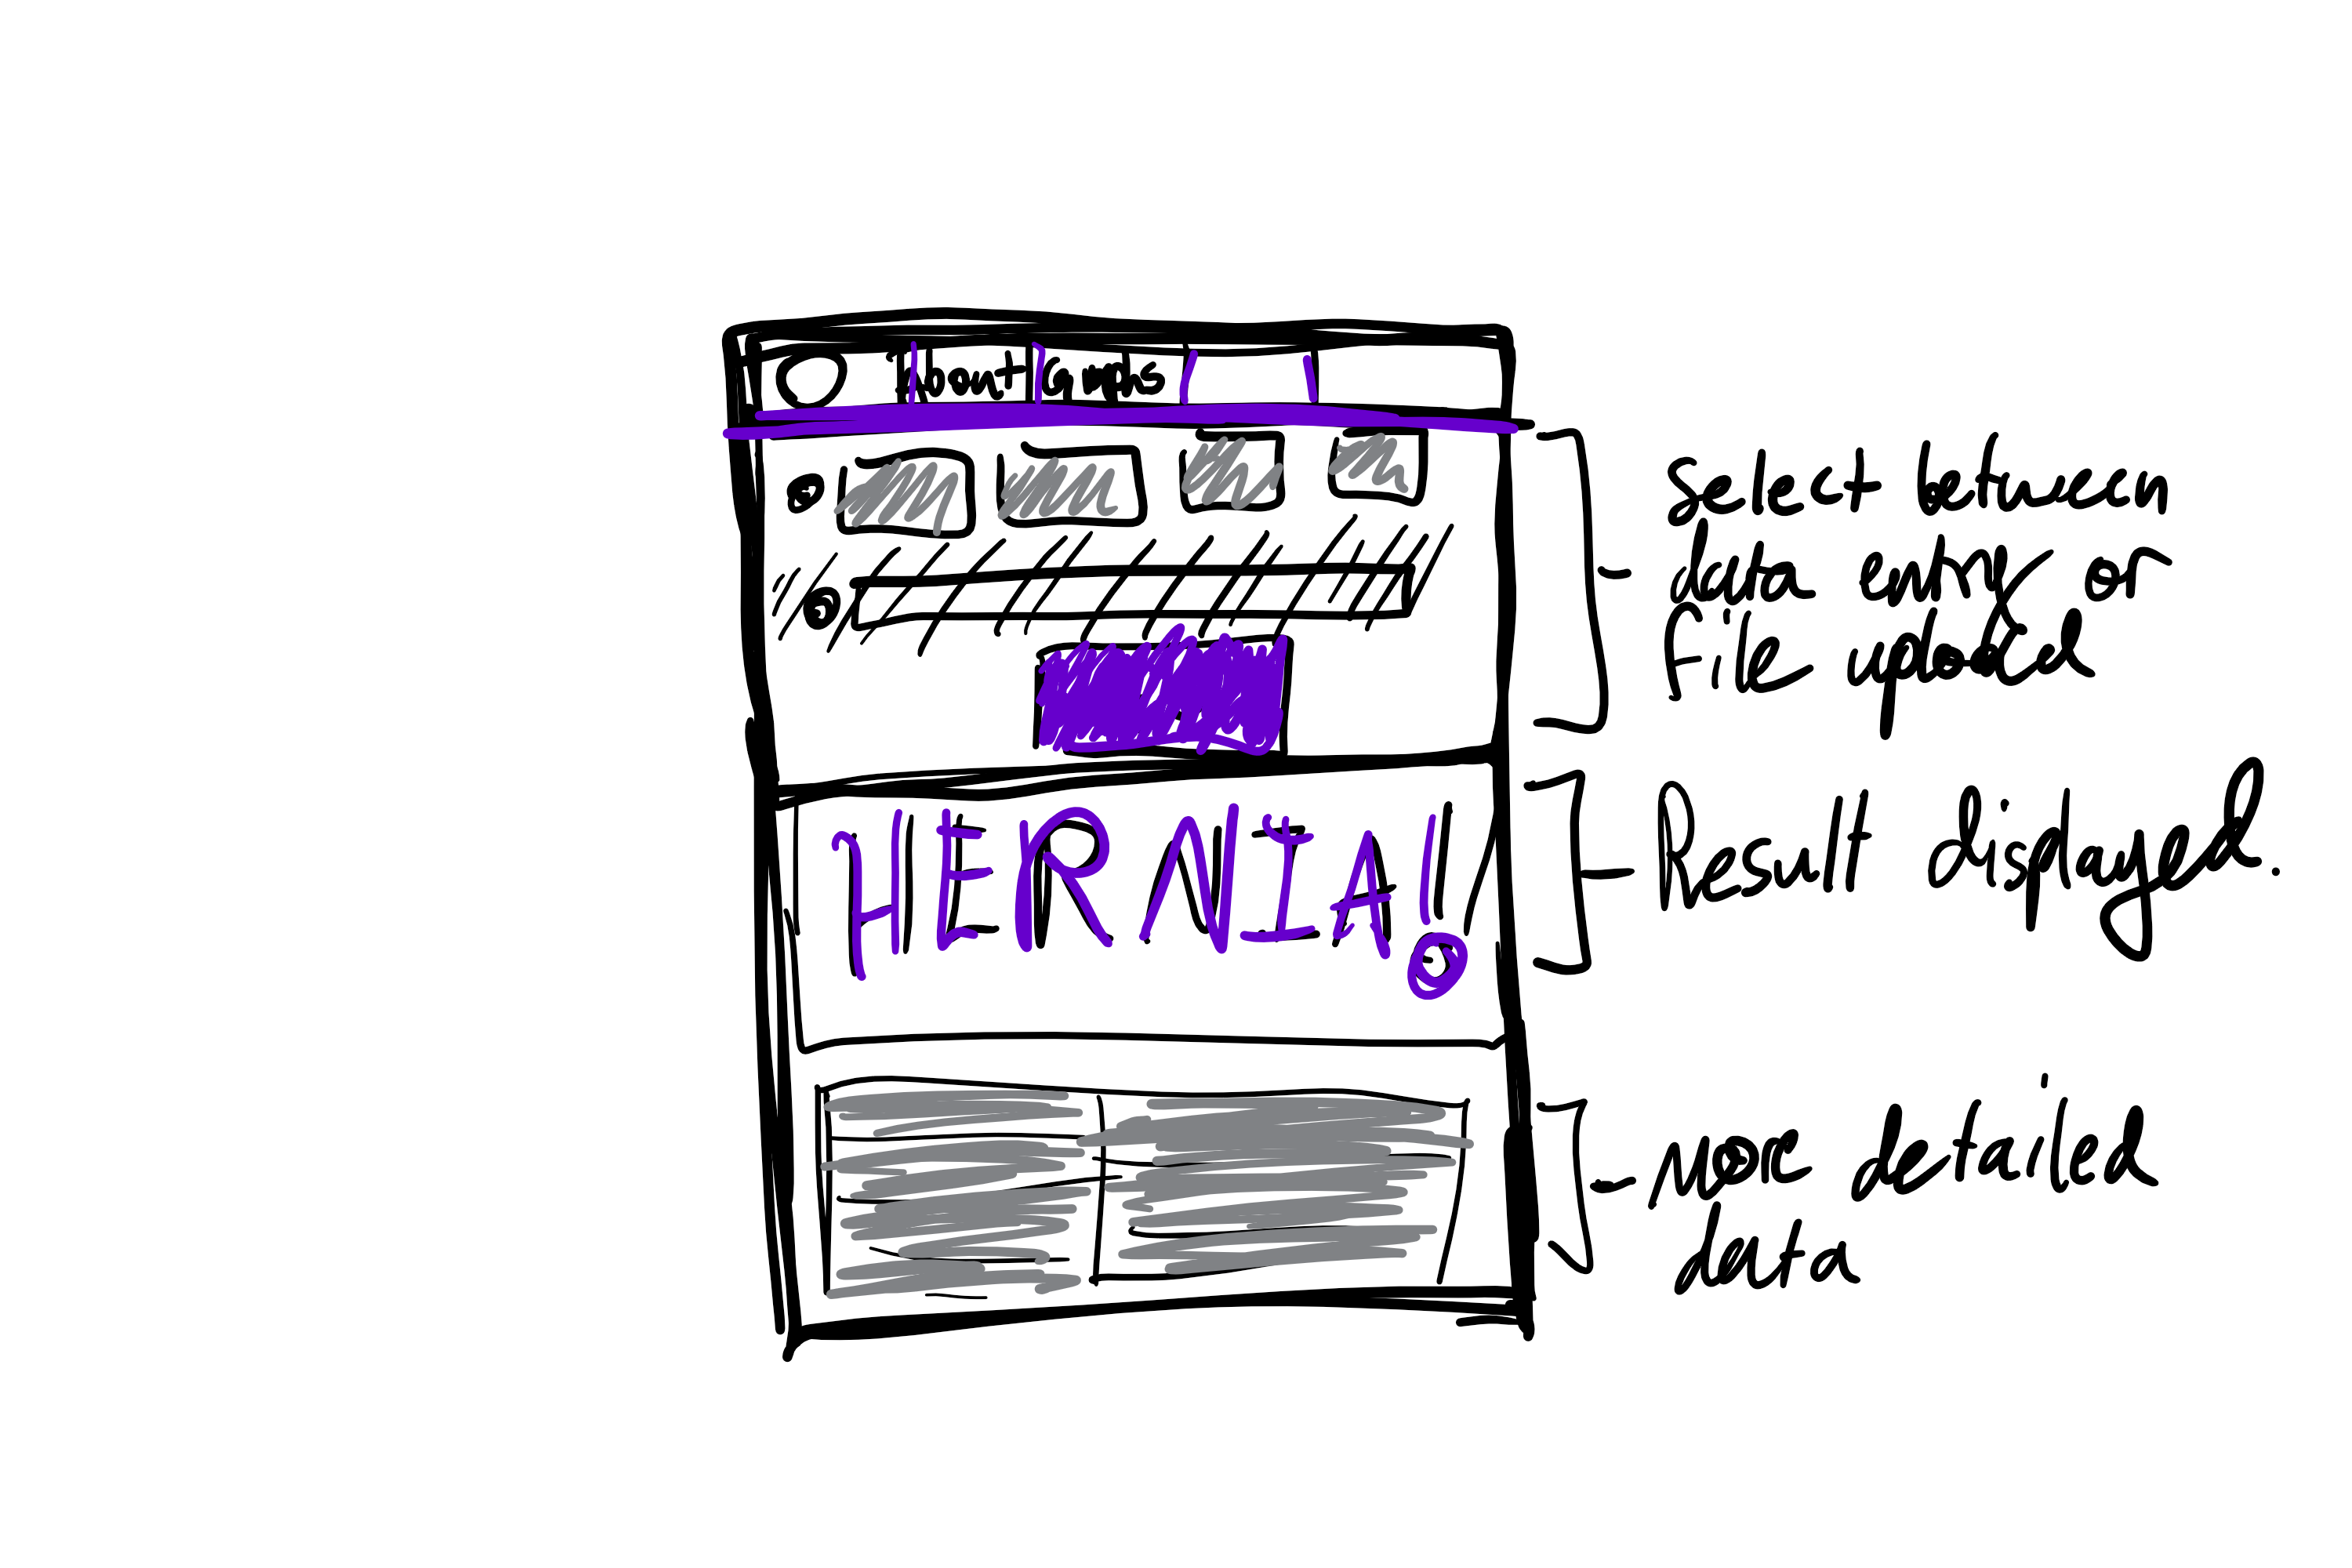 About Graphs
Select between
data entry or
File upload
HERNIA!
Result displayed.
More detailed
data